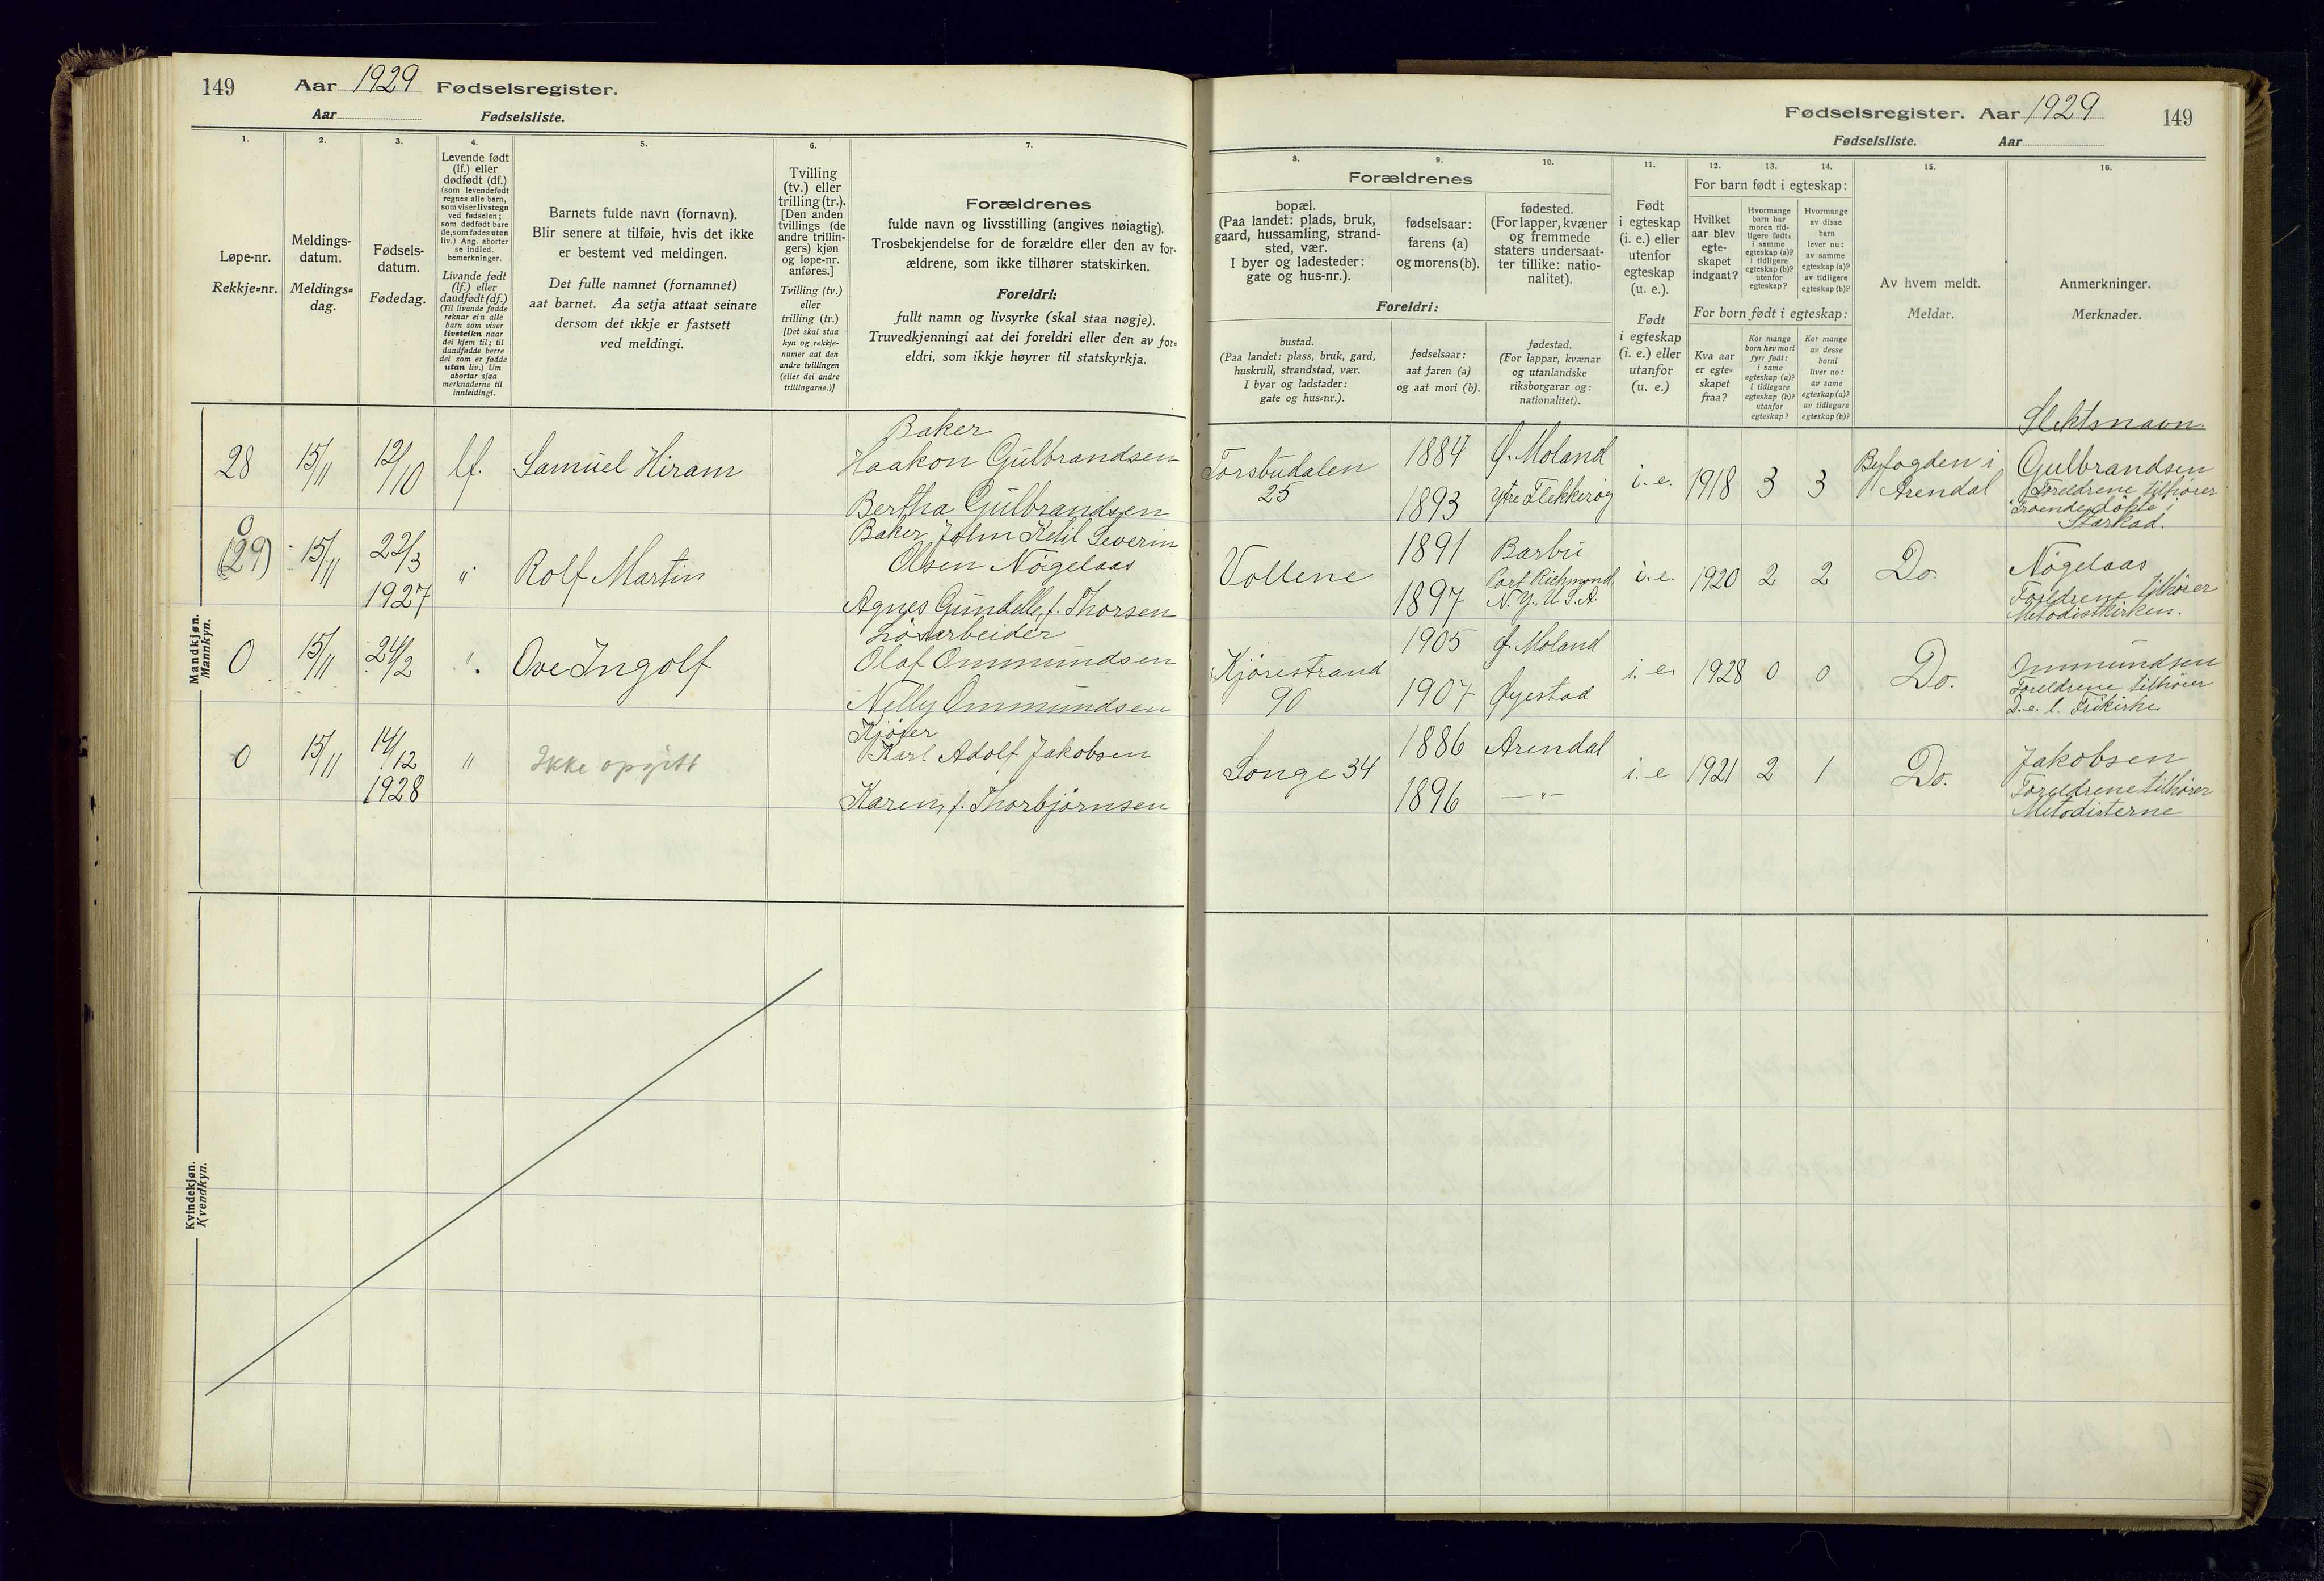 149 Aar 1929 Fødselsregister.
Aar Fødselsliste.
1.
Løpe-nr.
Rekkje-nr.
2.
Meldings-
datum.
Meldings-
dag.
3.
Fødsels-
datum.
Fødedag.
4.
Levende født
(lf.) eller
dødfødt (df.)
(som levendefødt
regnes alle barn,
som viser livstegn
ved fødselen;
som dødfødt bare
de, som fødes uten
liv.) Ang. aborter
se indled.
bemerkninger.
Livande født
(lf.) eller
daudfødt (df.)
(Til livande fødde
reknar ein alle
barn som viser
livsteikn naar
dei kjem til; til
daudfødde berre
dei som er fødde
utan liv.) Um
abortar sjaa
merknaderne til
innleidingi.
5.
Barnets fulde navn (fornavn).
Blir senere at tilføie, hvis det ikke
er bestemt ved meldingen.
Det fulle namnet (fornamnet)
aat barnet. Aa setja attaat seinare
dersom det ikkje er fastsett
ved meldingi.
6.
Tvilling
(tv.) eller
trilling (tr.).
[Den anden
tvillings (de
andre trillin-
gers) kjøn
og løpe-nr.
anføres.]
Tvilling (tv.)
eller
trilling (tr.)
[Det skal staa
kyn og rekkje-
numer aat den
andre tvillingen
(eller dei andre
trillingarne.)]
7.
Forældrenes
fulde navn og livsstilling (angives nøiagtig).
Trosbekjendelse for de forældre eller den av for-
ældrene, som ikke tilhører statskirken.
Foreldri:
fullt namn og livsyrke (skal staa nøgje).
Truvedkjenningi aat dei foreldri eller den av for-
eldri, som ikkje høyrer til statskyrkja.
Mandkjøn.
Mannkyn.
28 15/11 12/10 lf. Samuel Hiram
Baker
Haakon Gulbrandsen
Bertha Gulbrandsen
0
(29) 15/11 22/3
1927
" Rolf Martin
Baker John Ketil Severin
Olsen Nøgelaas
Agnes Gunbelle, f. Thorsen
0 15/11 24/2 " Ove Ingolf
Løsarbeider
Olaf Ommundsen
Nelly Ommundsen
0 15/11 14/12
1928
" Ikke opgitt
Kjører
Karl Adolf Jakobsen
Karen, f. Thorbjørnsen
Kvindekjøn.
Kvendkyn.
Fødselsregister. Aar 1929 149
Fødselsliste. Aar
8.
Forældrenes
bopæl.
(Paa landet: plads, bruk,
gaard, hussamling, strand-
sted, vær.
I byer og ladesteder:
gate og hus-nr.).
9.
fødselsaar:
farens (a)
og morens (b).
10.
fødested.
(For lapper, kvæner
og fremmede
staters undersaat-
ter tillike: natio-
nalitet).
Foreldri:
bustad.
(Paa landet: plass, bruk, gard,
huskrull, strandstad, vær.
I byar og ladstader:
gate og hus-nr.).
fødselsaar:
aat faren (a)
og aat mori (b).
fødestad.
(For lappar, kvænar
og utanlandske
riksborgarar og:
nationalitet).
11.
Født
i egteskap
(i. e.) eller
utenfor
egteskap
(u. e.).
Født
i egteskap
(i. e.) eller
utanfor
(u. e.)
12. 13. 14.
For barn født i egteskap:
Hvilket
aar blev
egte-
skapet
indgaat?
Hvormange
barn har
moren tid-
ligere født:
i samme
egteskap (a)?
i tidligere
egteskap (b)?
utenfor
egteskap?
Hvormange
av disse
barn
lever nu:
av samme
egteskap (a)?
av tidligere
egteskap (b)?
For born født i egteskap:
Kva aar
er egte-
skapet
fraa?
Kor mange
born hev mori
fyrr født:
i same
egteskap (a)?
i tidlegare
egteskap (b)?
utanfor
egteskap?
Kor mange
av desse
borni
liver no:
av same
egteskap (a)?
av tidlegare
egteskap (b)?
15.
Av hvem meldt.
Meldar.
16.
Anmerkninger.
Merknader.
Slektsnavn
Torsbudalen
25
1884
1893
Ø. Moland
Ytre Flekkerøy
i. e. 1918 3 3
Byfogden i
Arendal
Gulbrandsen
Foreldrene tilhører
Troendedøpte i
Starkad.
Vollene
1891
1897
Barbu
Port Richmond,
N. Y., U. S. A.
i. e. 1920 2 2 Do.
Nøgelaas
Foreldrene tilhører
Metodistkirken.
Kjørestrand
90
1905
1907
Ø. Moland
Øyestad
i. e. 1928 0 0 Do.
Ommundsen
Foreldrene tilhører
D. e. l. Frikirke
Songe 34
1886
1896
Arendal
— " —
i. e 1921 2 1 Do.
Jakobsen
Foreldrene tilhører
Metodisterne